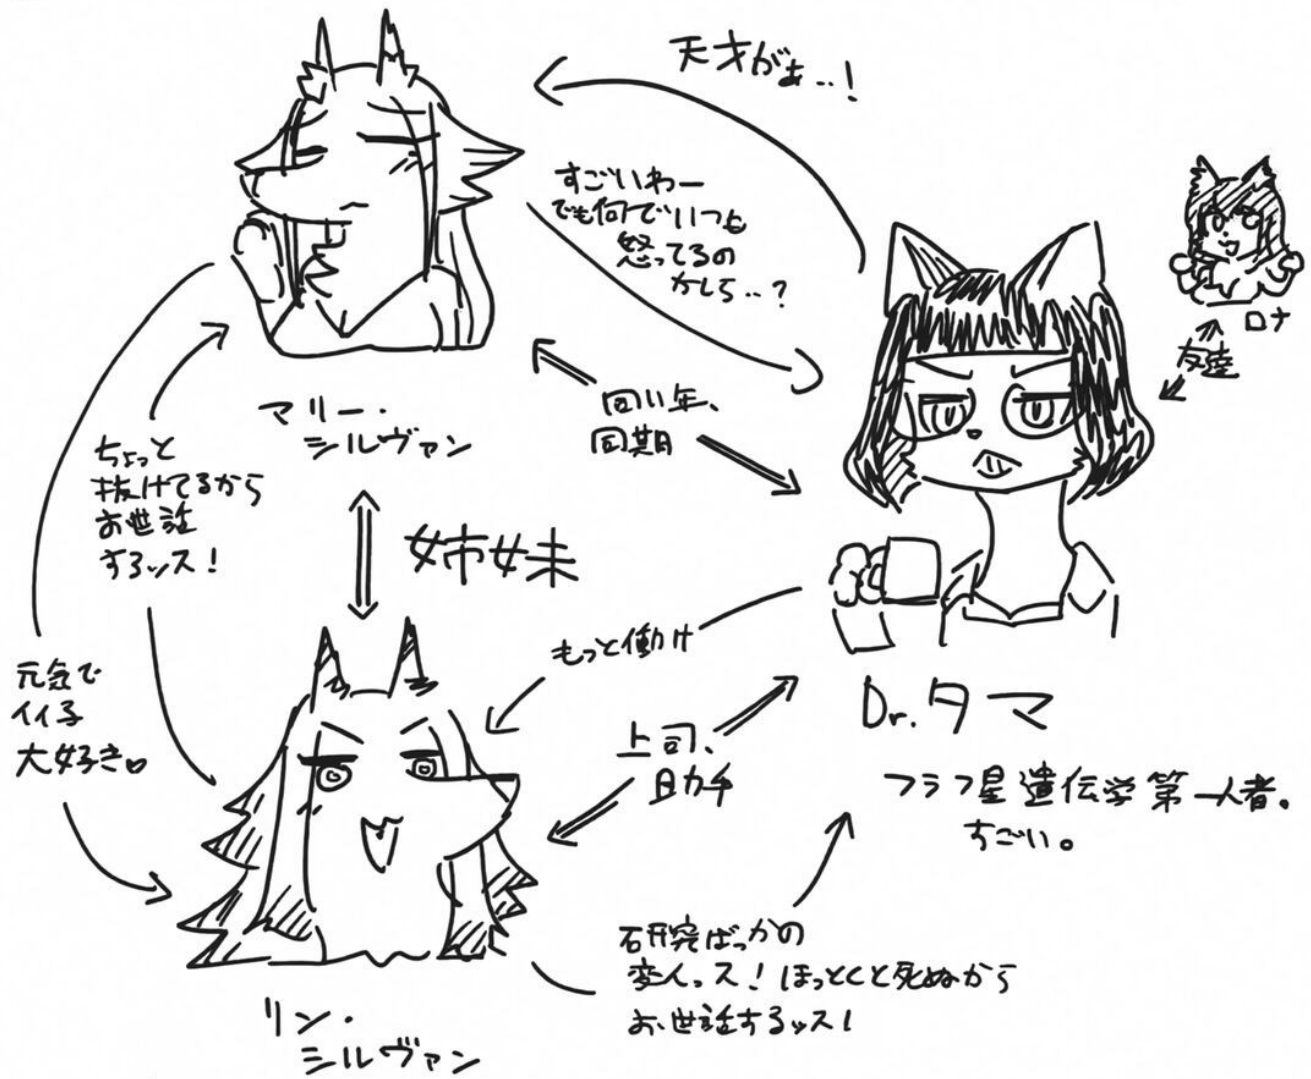 天才がぁ‥!
すごいわー
でも何でいつも
怒ってるの
かしら‥?
ロナ
友達
同い年、
同期
マリー・
シルヴァン
ちょっと
抜けてるから
お世話
するッス!
姉妹
もっと働け
元気で
イイ子
大好き。
上司、
助手
Dr.タマ
フラフ星遺伝学第一人者。
すごい。
研究ばっかの
変人っス!ほっとくと死ぬから
お世話するッス!
リン・
シルヴァン